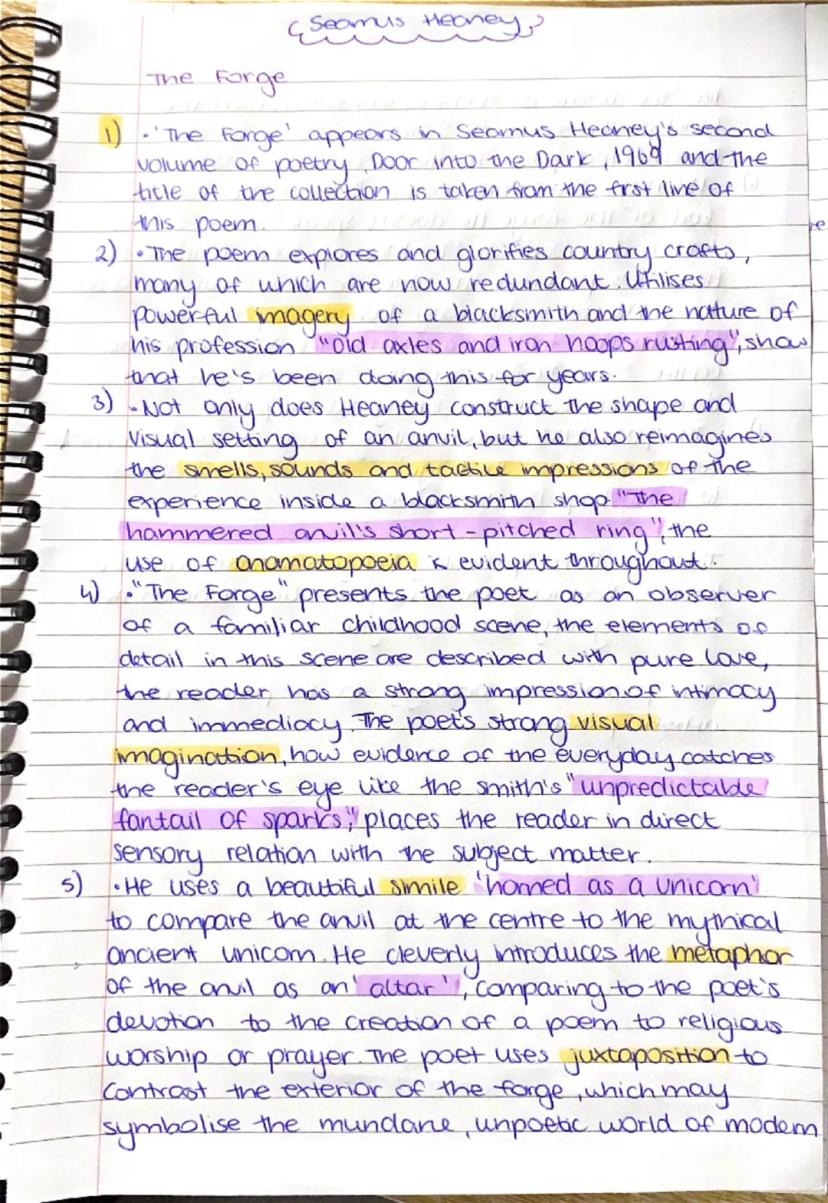 Seamus Heaney
The Forge
1) •'The Forge' appears in Seamus Heaney's second
volume of poetry, Door into the Dark, 1969 and the
title of the collection is taken from the first line of
this poem.
2) •The poem explores and glorifies country crafts,
many of which are now redundant. Utilises
powerful imagery of a blacksmith and the nature of
his profession "old axles and iron hoops rusting", show
that he's been doing this for years.
3) •Not only does Heaney construct the shape and
visual setting of an anvil, but he also reimagines
the smells, sounds and tactile impressions of the
experience inside a blacksmith shop "The
hammered anvil's short-pitched ring", the
use of onamatopoeia is evident throughout.
4) •"The Forge" presents the poet as an observer
of a familiar childhood scene, the elements of
detail in this scene are described with pure love,
the reader has a strong impression of intimacy
and immediacy. The poet's strong visual
imagination, how evidence of the everyday catches
the reader's eye like the smith's "unpredictable
fantail of sparks", places the reader in direct
sensory relation with the subject matter.
5) •He uses a beautiful simile 'horned as a unicorn'
to compare the anvil at the centre to the mythical
ancient unicorn. He cleverly introduces the metaphor
of the anvil as an 'altar', comparing to the poet's
devotion to the creation of a poem to religious
worship or prayer. The poet uses juxtaposition to
contrast the exterior of the forge, which may
symbolise the mundane, unpoetic world of modern